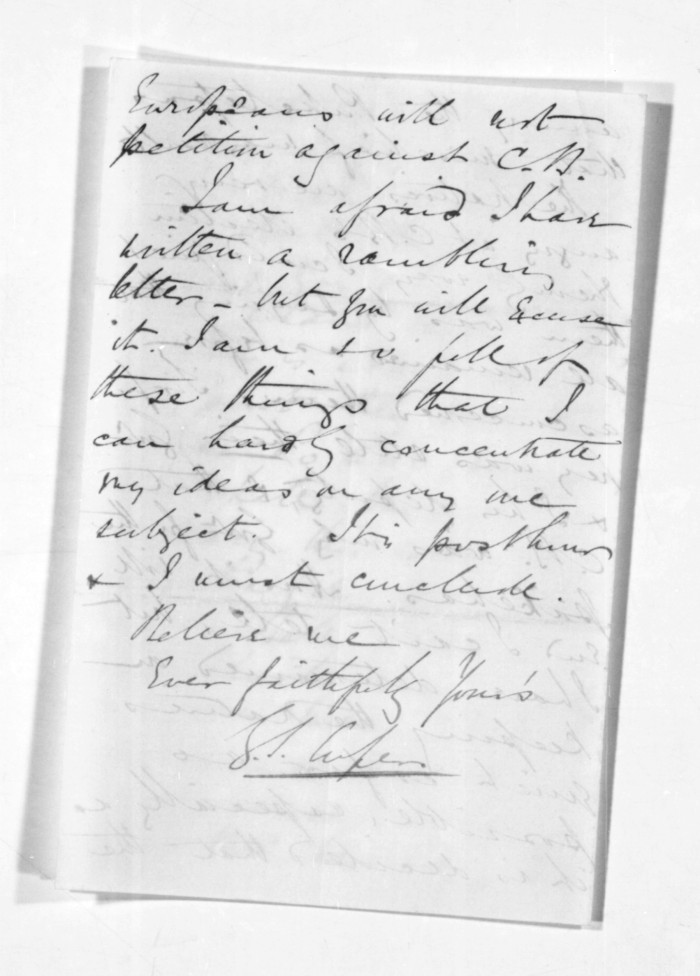 Europeans will not
petition against C.B.
I am afraid I have
written a rambling
letter - but you will excuse
it. I am so full of
these things that I
can hardly concentrate
my ideas on any one
subject. It is post hour
& I must conclude.
Believe me
Ever faithfully Your's